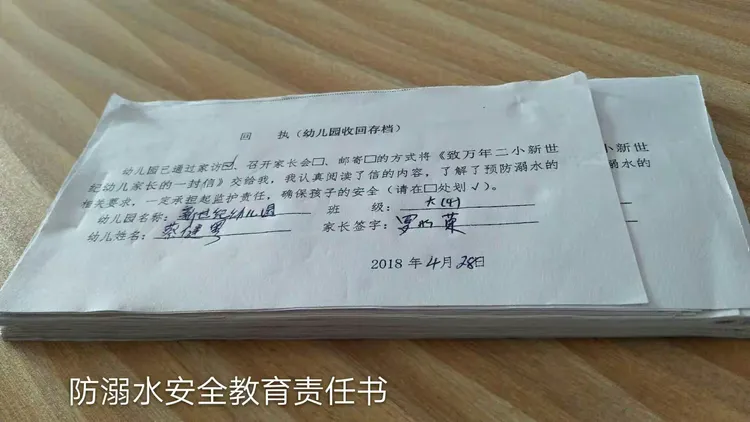 回 执(幼儿园收回存档)
幼儿园已通过家访☑、召开家长会□、邮寄□的方式将《致万年二小新世
纪幼儿家长的一封信》交给我,我认真阅读了信的内容,了解了预防溺水的
相关要求,一定承担起监护责任,确保孩子的安全(请在□处划√)。
幼儿园名称:新世纪幼儿园 班 级:大(4)
幼儿姓名:蔡健男 家长签字:罗
2018 年 4 月 28 日
二小新世
防溺水的
√)。
日
防溺水安全教育责任书